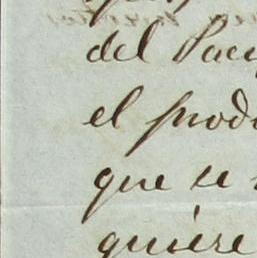 del Paci
el produ
que se
quiere